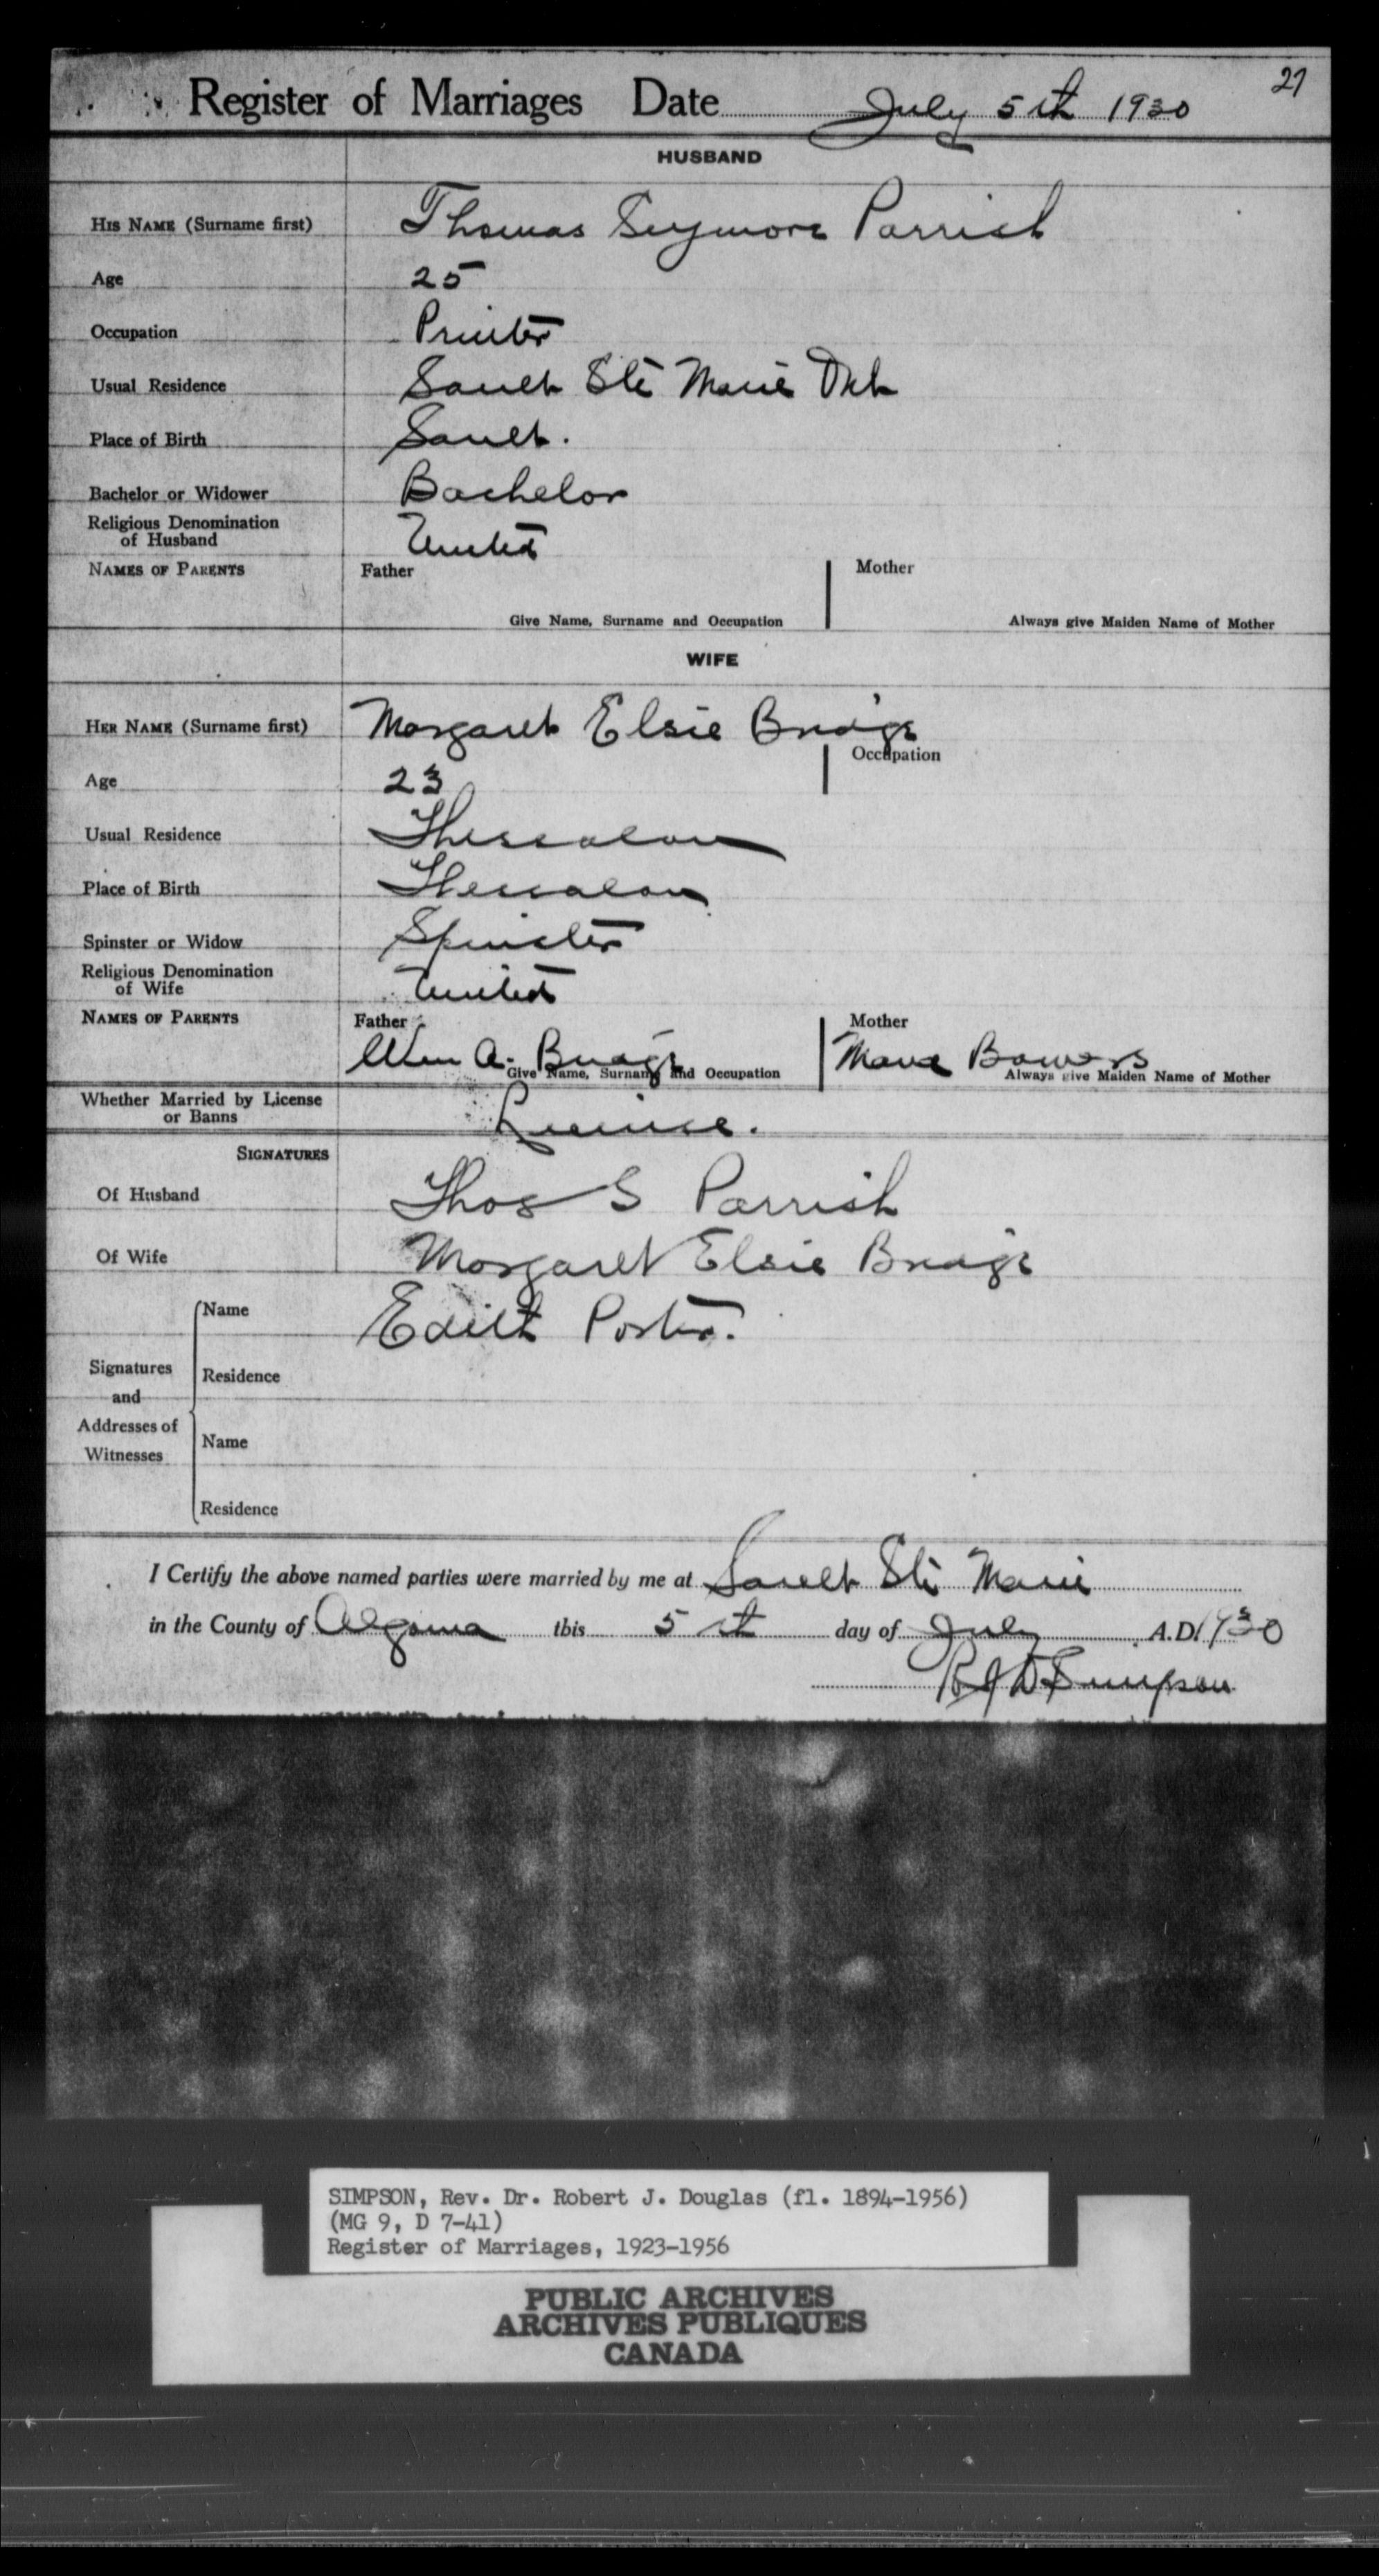 27
Register of Marriages Date July 5th 1930
HUSBAND
HIS NAME (Surname first) Thomas Seymore Parrish
Age 25
Occupation Printer
Usual Residence Sault Ste Marie Ont
Place of Birth Sault.
Bachelor or Widower Bachelor
Religious Denomination
of Husband United
NAMES OF PARENTS Father Mother
Give Name, Surname and Occupation Always give Maiden Name of Mother
WIFE
HER NAME (Surname first) Margaret Elsie Bridge
Occupation
Age 23
Usual Residence Thessalon
Place of Birth Thessalon
Spinster or Widow Spinster
Religious Denomination
of Wife United
NAMES OF PARENTS Father Mother
Wm A. Bridge Bowers
Give Name, Surname and Occupation Always give Maiden Name of Mother
Whether Married by License
or Banns License.
SIGNATURES
Of Husband Thos S Parrish
Of Wife Margaret Elsie Bridge
Name Edith Porter.
Signatures
and
Addresses of
Witnesses
Residence
Name
Residence
I Certify the above named parties were married by me at Sault Ste Marie
in the County of Algoma this 5th day of July A.D. 1930
R J D Simpson
SIMPSON, Rev. Dr. Robert J. Douglas (fl. 1894-1956)
(MG 9, D 7-41)
Register of Marriages, 1923-1956
PUBLIC ARCHIVES
ARCHIVES PUBLIQUES
CANADA